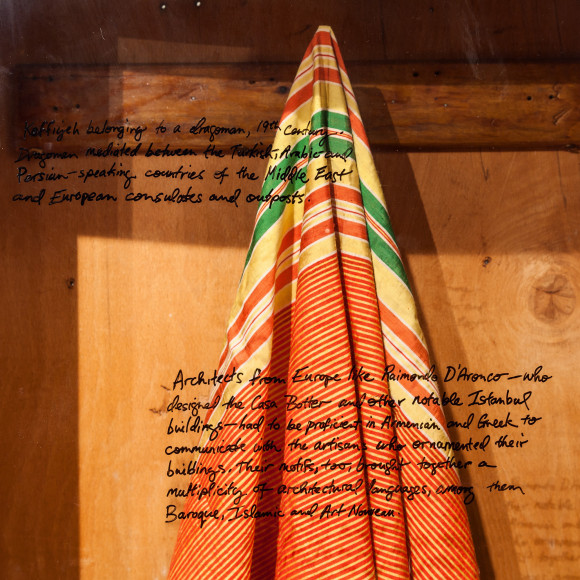 Keffiyeh belonging to a dragoman, 19th century.
Dragoman mediated between the Turkish, Arabic and
Persian-speaking countries of the Middle East
and European consulates and outposts.
Architects from Europe like Raimondo D'Aronco—who
designed the Casa Botter and other notable Istanbul
buildings—had to be proficient in Armenian and Greek to
communicate with the artisans who ornamented their
buildings. Their motifs, too, brought together a
multiplicity of architectural languages, among them
Baroque, Islamic and Art Nouveau.